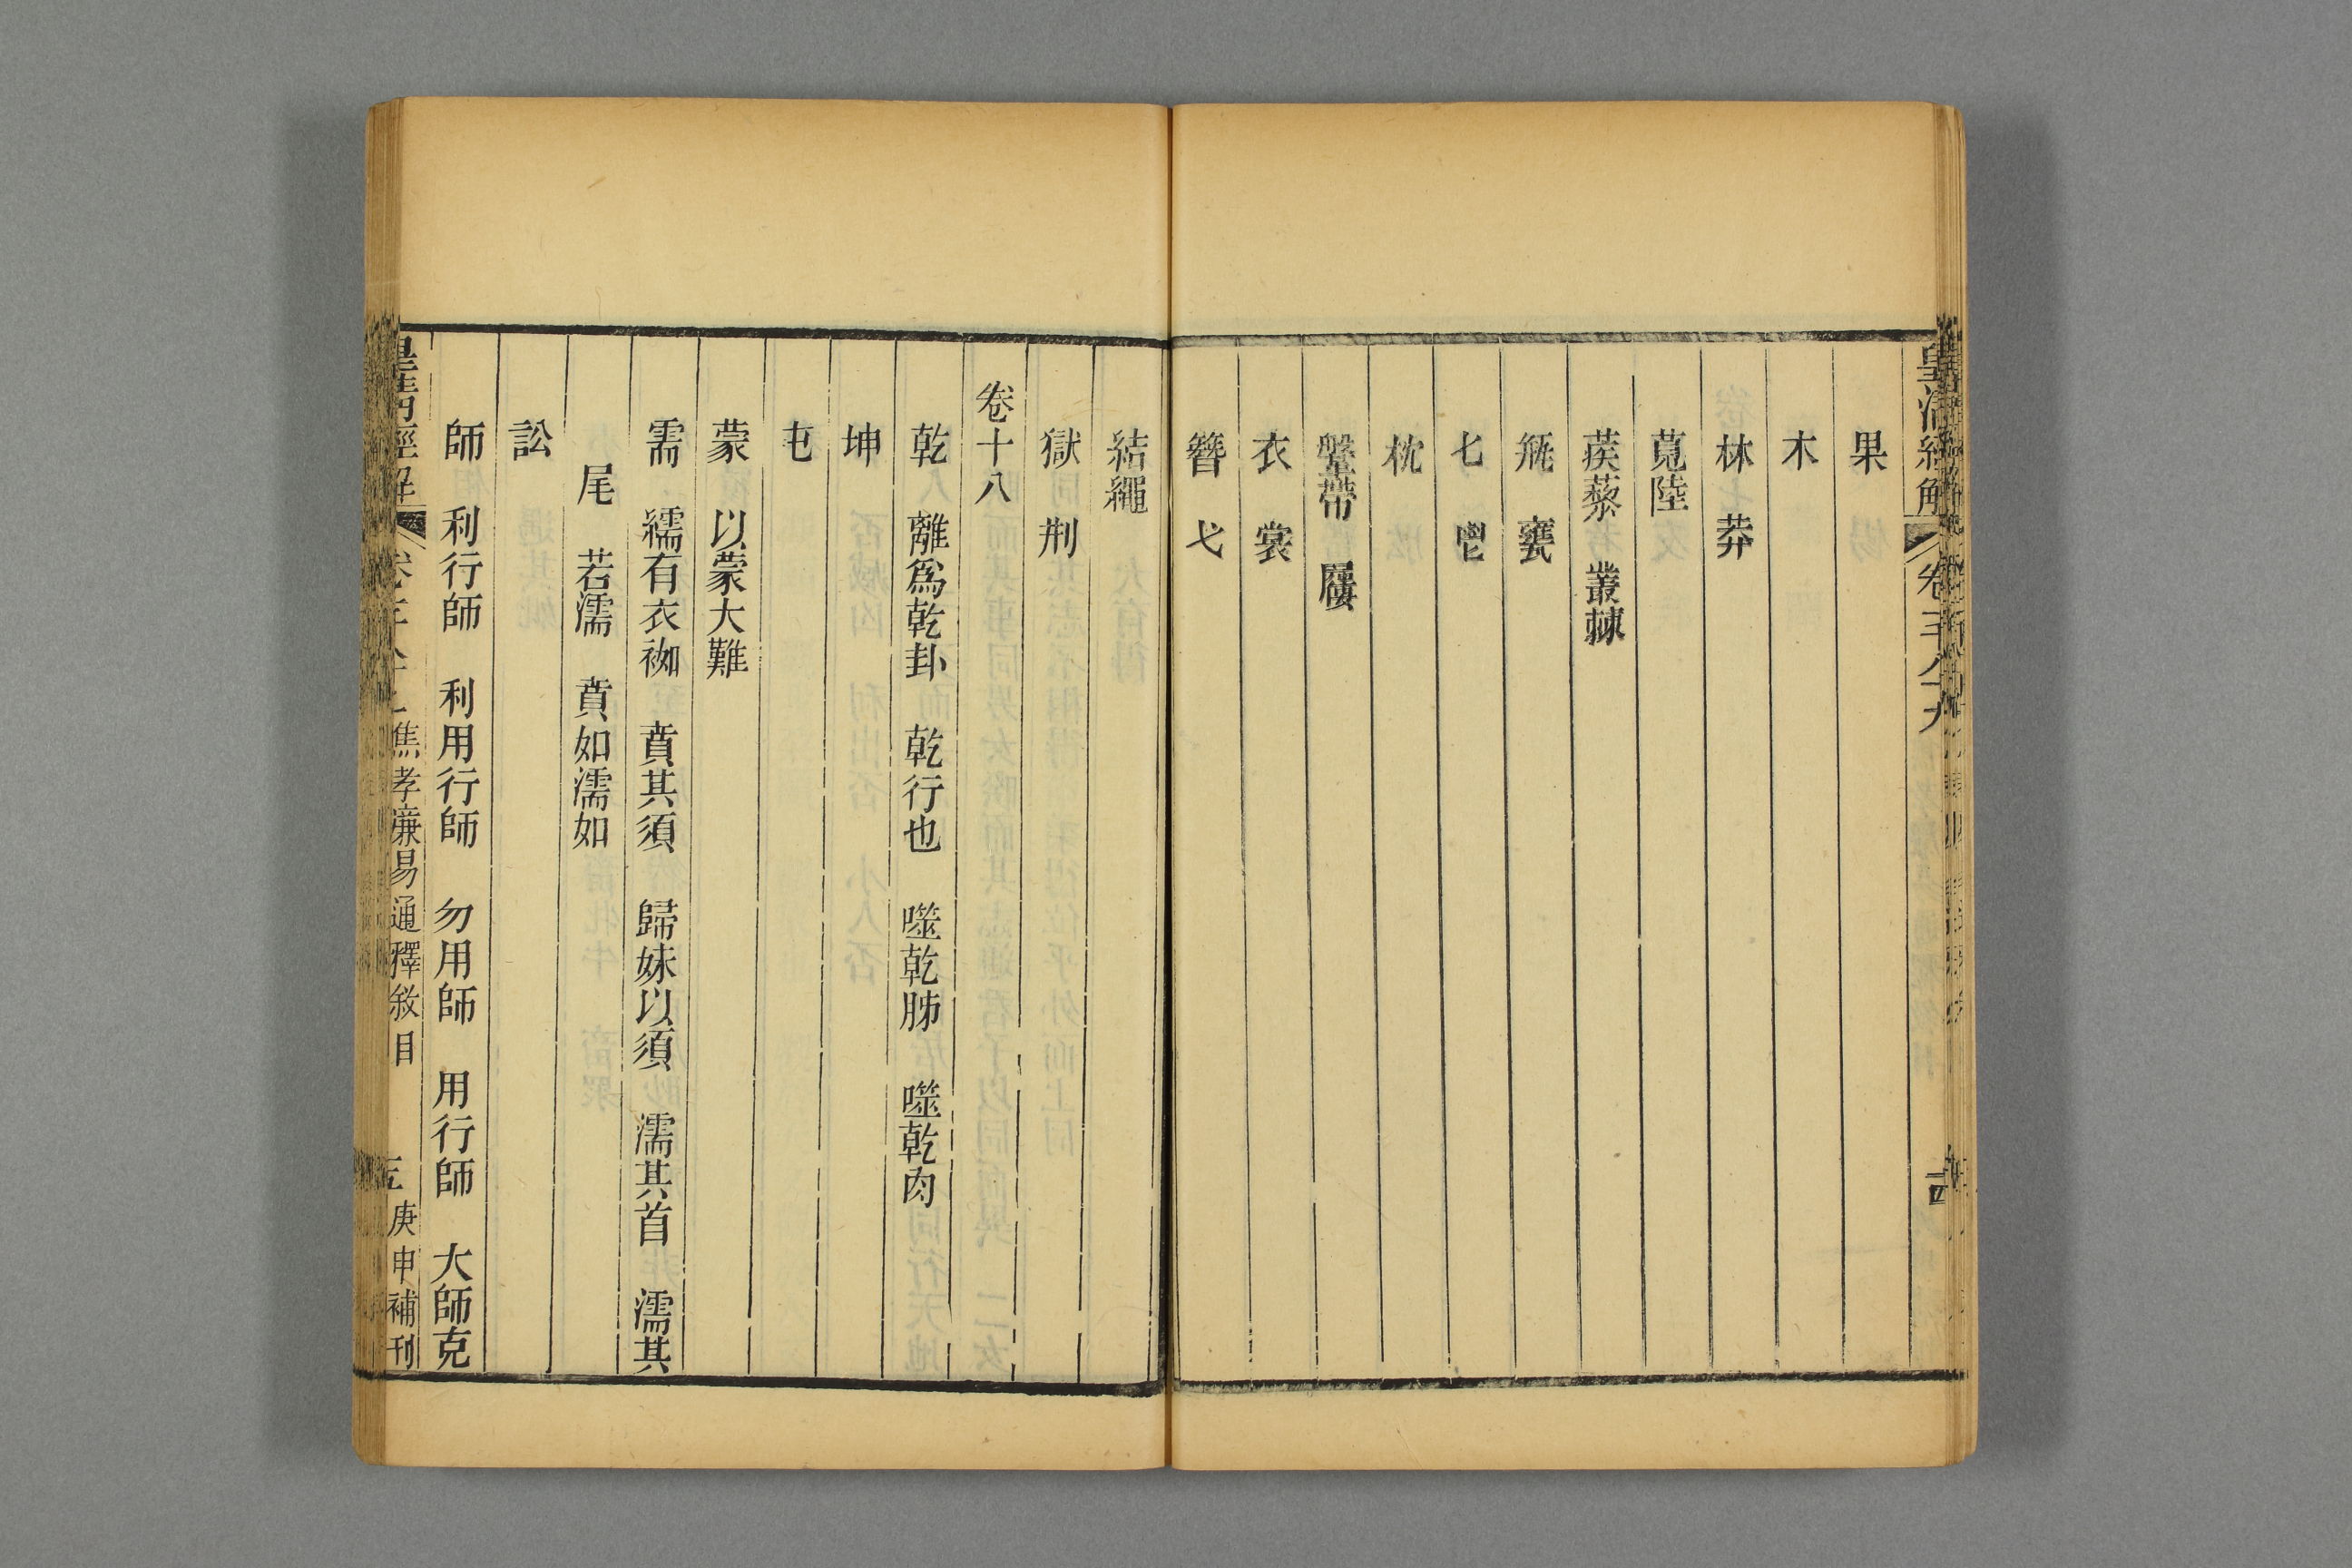 果
木
林 莽
莧陸
蒺藜 叢棘
甁 甕
匕 鬯
枕
鞶帶 屨
衣 裳
簪 弋
結繩
獄 荆
卷十八
乾 離爲乾卦 乾行也 噬乾胏 噬乾肉
坤
屯
蒙 以蒙大難
需 繻有衣袽 賁其須 歸妹以須 濡其首 濡其
尾 若濡 賁如濡如
訟
師 利行師 利用行師 勿用師 用行師 大師克
焦孝廉易通釋敘目
庚申補刊